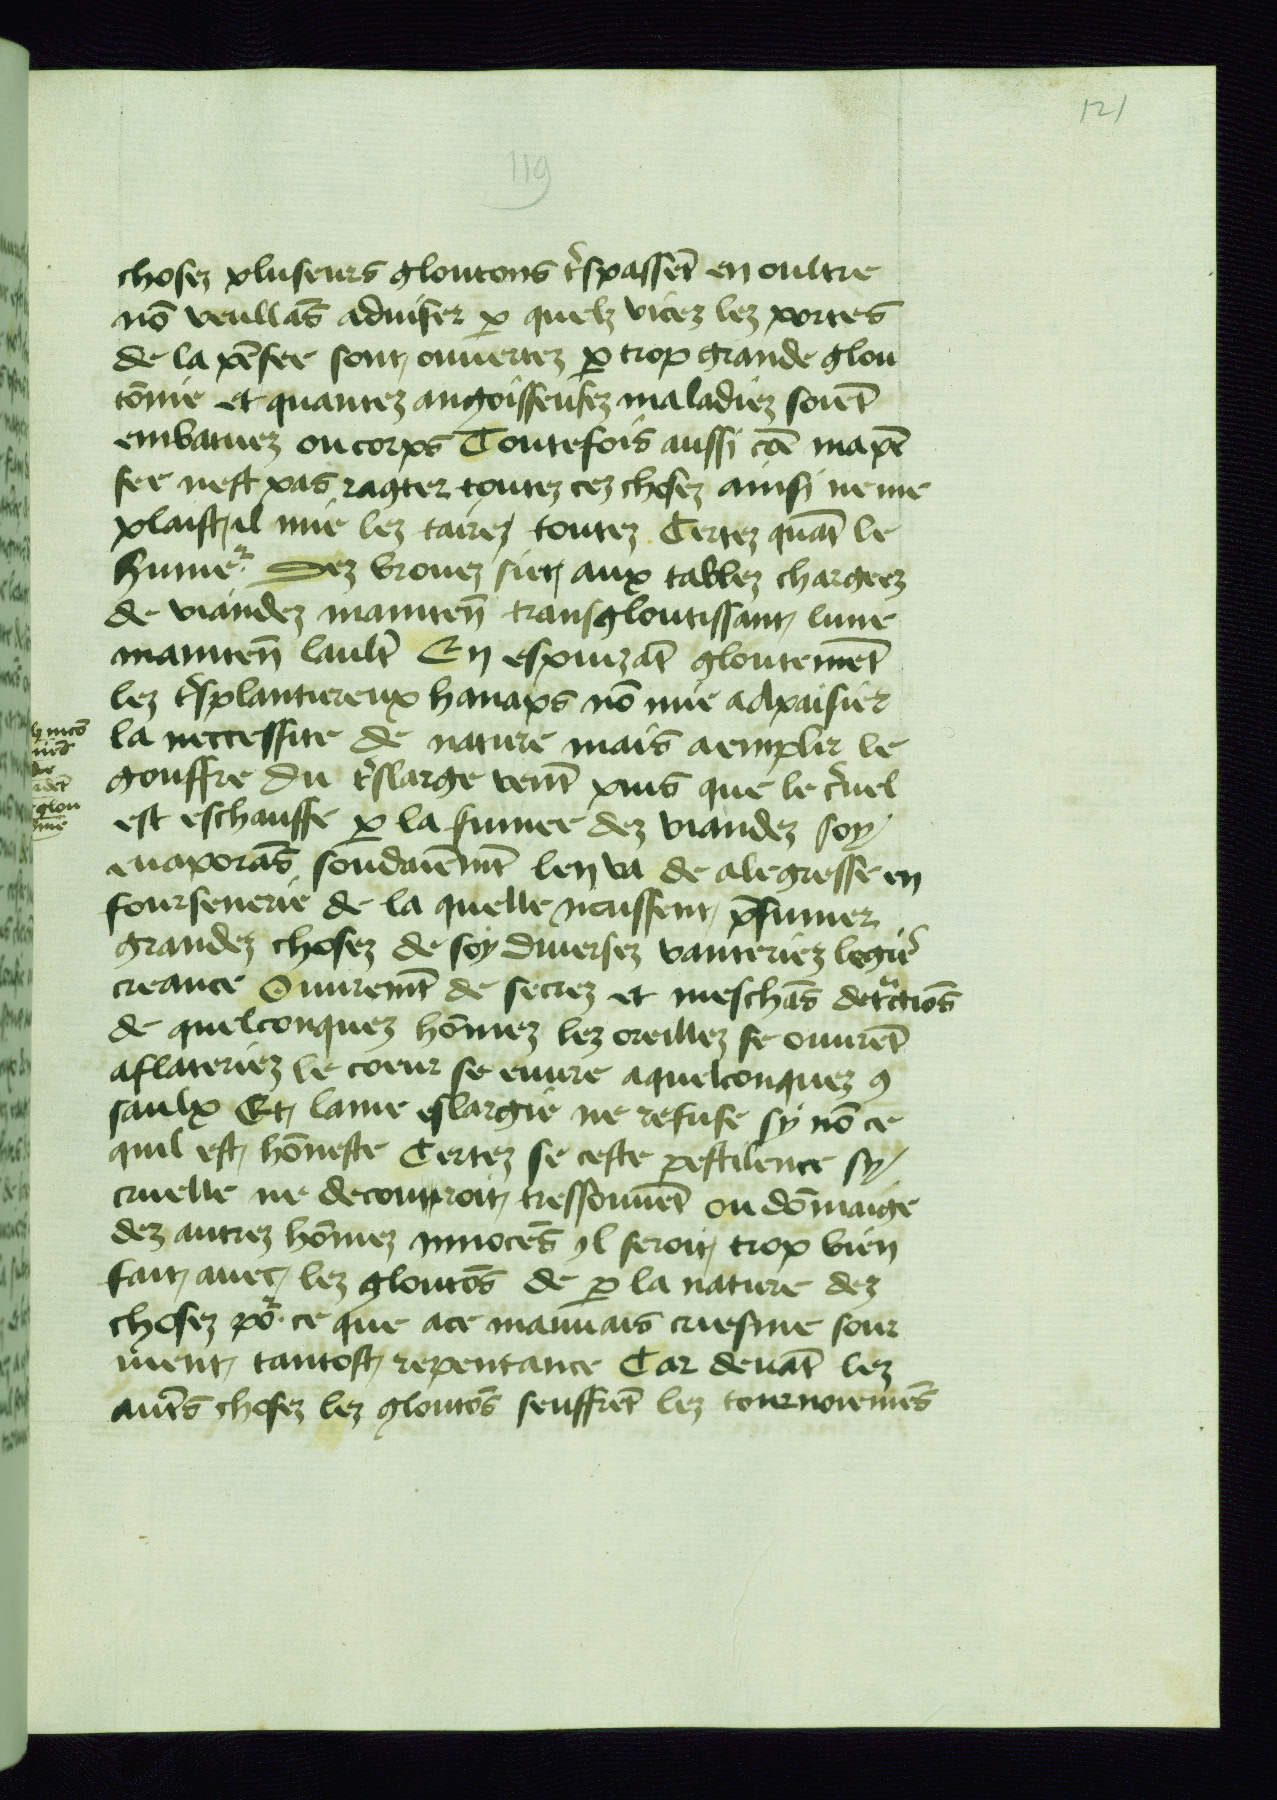 121
119
chosez pluseurs gloutons t̾spassēt en oultre
nō veullās aduiser ꝑ quelz vicez lez portes
de la pēsee sont ouuertez ꝑ trop grande glou
tōnie et quantez angoisseusez maladiez soiēt
embatuez ou corps Toutefois aussi cōe ma pē
see nest pas ragter toutez cez chosez ainsi ne me
plaist il mie lez tairez toutez Certez quāt le
humeʳ Dez brouez siet aux tablez chargeez
de viandez mainten̄ transgloutissant lune
mainten̄ lault̾ En espuizāt gloutemēt
lez t̾splantureux hanaps nō mie adpaisier
la neccessite de nature mais aemplir le
gouffre du t̾slarge vent̄ puis que le c̾uel
est eschauffe ꝑ la fumee dez viandez soy
euaporās soudainem̄t len va de alegresse en
foursenerie de la quelle neussent p̄sumer
grandez chosez de soy diuersez vanteriez legie̾
creance Ouurem̄t de secrez et meschās detᵃctiōs
de quelconquez hōmez lez oreillez se ouurēt
aflateriez le coeur se euure aquelconquez ꝯ
saulx Et lame eslargie ne refuse sy nō ce
quil est hōneste Certez se ceste pestilence sy
cruelle ne decourroit tressouuēt ou dōmaige
dez autrez hōmez innocēs yl seroit trop bien
fait auec lez gloutōs de ꝑ la nature dez
chosez poʳ ce que ace mauuais criesme sour
uient tantost repentance Car deuāt lez
aut̄s chosez lez gloutōs seuffrēt lez tournoiemēs
glou